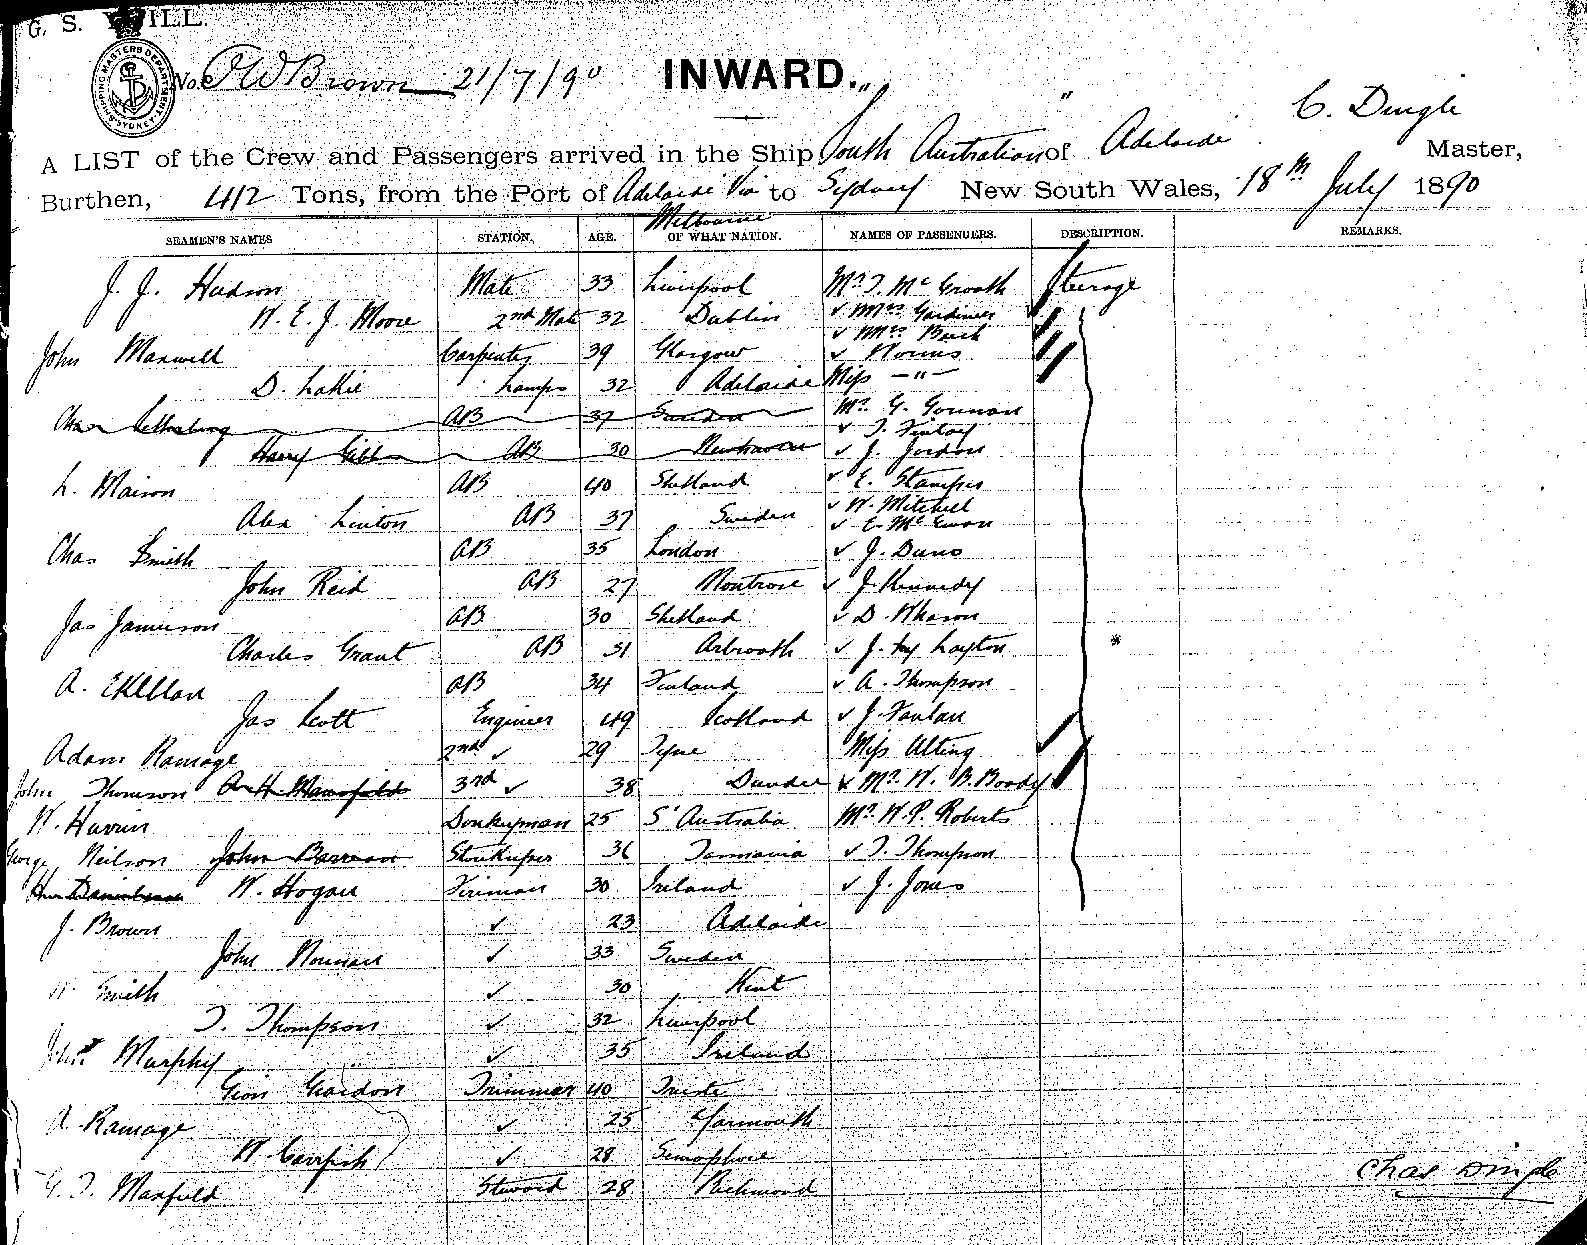 G. S. YUILL.
SHIPPING MASTERS DEPARTMENT SYDNEY
No. J W Brown 21/7/90 INWARD.
" " C. Dingle
A LIST of the Crew and Passengers arrived in the Ship South Australian of Adelaide Master,
Burthen, 412 Tons, from the Port of Adelaide Via to Sydney New South Wales, 18th July 1890
Melbourne
SEAMEN'S NAMES STATION. AGE. OF WHAT NATION. NAMES OF PASSENGERS. DESCRIPTION. REMARKS.
J. J. Hudson Mate 33 Liverpool Mr. T. McGrouth Steerage
W. E. J. Moore 2nd Mate 32 Dublin ✓ Mrs Gardiner
✓ Mrs Buch
John Maxwell Carpenter 39 Glasgow ✓ Norris
D. Lakie Lamps 32 Adelaide Miss — " —
Chas AB 37 Sweden Mr. G. Gounon
✓ T. Finlay
Harry Gibb AB 30 Newhaven ✓ J. Jordon
L. Maison AB 40 Shetland ✓ E. Stamper
✓ W. Mitchell
Alex Linton AB 37 Sweden ✓ E. McEwan
Chas Smith AB 35 London ✓ J. Davis
John Reid AB 27 Montrose ✓ J. Kennedy
Jas Jamieson AB 30 Shetland ✓ D.
Charles Grant AB 31 Arbroath ✓ J. Layton
A. Ekllan AB 34 Finland ✓ A. Thompson
Jas Scott Engineer 49 Scotland ✓ J.
Adam Ramage 2nd ✓ 29 Tyne Miss Alting
John Thomson A. H. Mansfield 3rd ✓ 38 Dundee ✓ Mr. W. B. Boody
W. Hurrin Donkeyman 25 S. Australia Mr. W. P. Roberts
George Neilson John Barreson Storekeeper 36 Tasmania ✓ T. Thompson
W. Hogan Fireman 30 Ireland ✓ J. Jones
J. Brown ✓ 23 Adelaide
John Norman ✓ 33 Sweden
W. Smith ✓ 30 Kent
T. Thompson ✓ 32 Liverpool
John Murphy ✓ 35 Ireland
Gion Gordon Trimmer 40 Trieste
A. Ramage ✓ 25 Yarmouth
W. ✓ 28 Semaphore
G. T. Maxfield Steward 28 Richmond
Chas Dingle